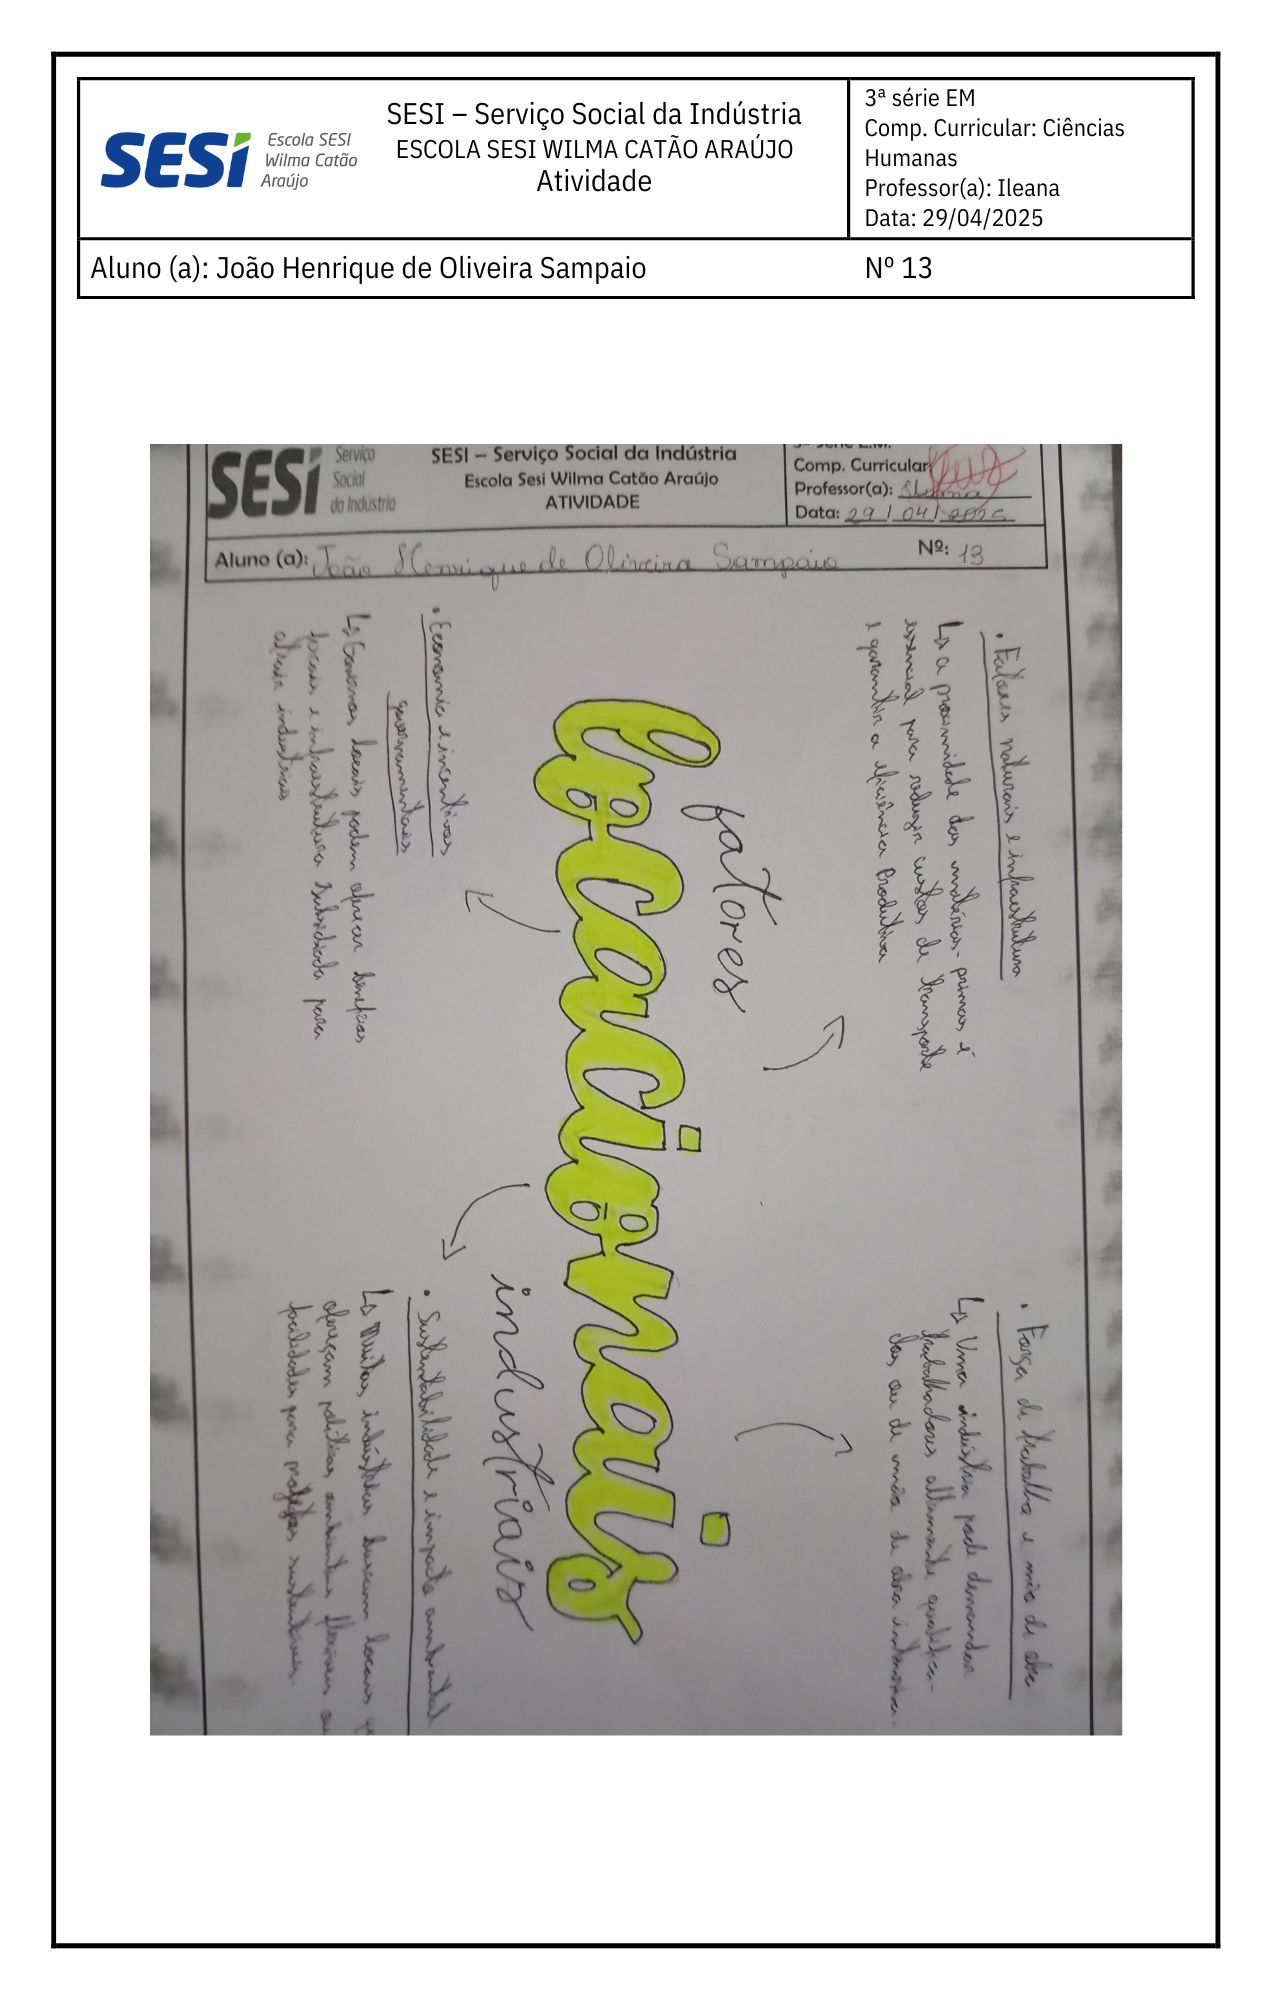 SESI
Escola SESI
Wilma Catão
Araújo
SESI – Serviço Social da Indústria
ESCOLA SESI WILMA CATÃO ARAÚJO
Atividade
3ª série EM
Comp. Curricular: Ciências
Humanas
Professor(a): Ileana
Data: 29/04/2025
Aluno (a): João Henrique de Oliveira Sampaio
Nº 13
SESI
Serviço
Social
da Indústria
SESI – Serviço Social da Indústria
Escola Sesi Wilma Catão Araújo
ATIVIDADE
Comp. Curricular:
Professor(a): Ileana
Data: 29/04/2025
Aluno (a): João Henrique de Oliveira Sampaio
Nº: 13
• Fatores naturais e infraestrutura
↳ a proximidade das matérias-primas é
essencial para reduzir custos de transporte
e garantir a eficiência Produtiva
• Força de trabalho e mão de obr
↳ Uma indústria pode demandar
trabalhadores altamente qualifica-
dos ou de mão de obra intensiva.
fatores
locacionais
industriais
• Economia e incentivos
governamentais
↳ Governos locais podem oferecer benefícios
fiscais e infraestrutura subsidiada para
atrair indústrias
• Sustentabilidade e impacto ambiental
↳ Muitas indústrias buscam locais q
ofereçam políticas ambientais flexíveis ou
facilidades para projetos sustentáveis.